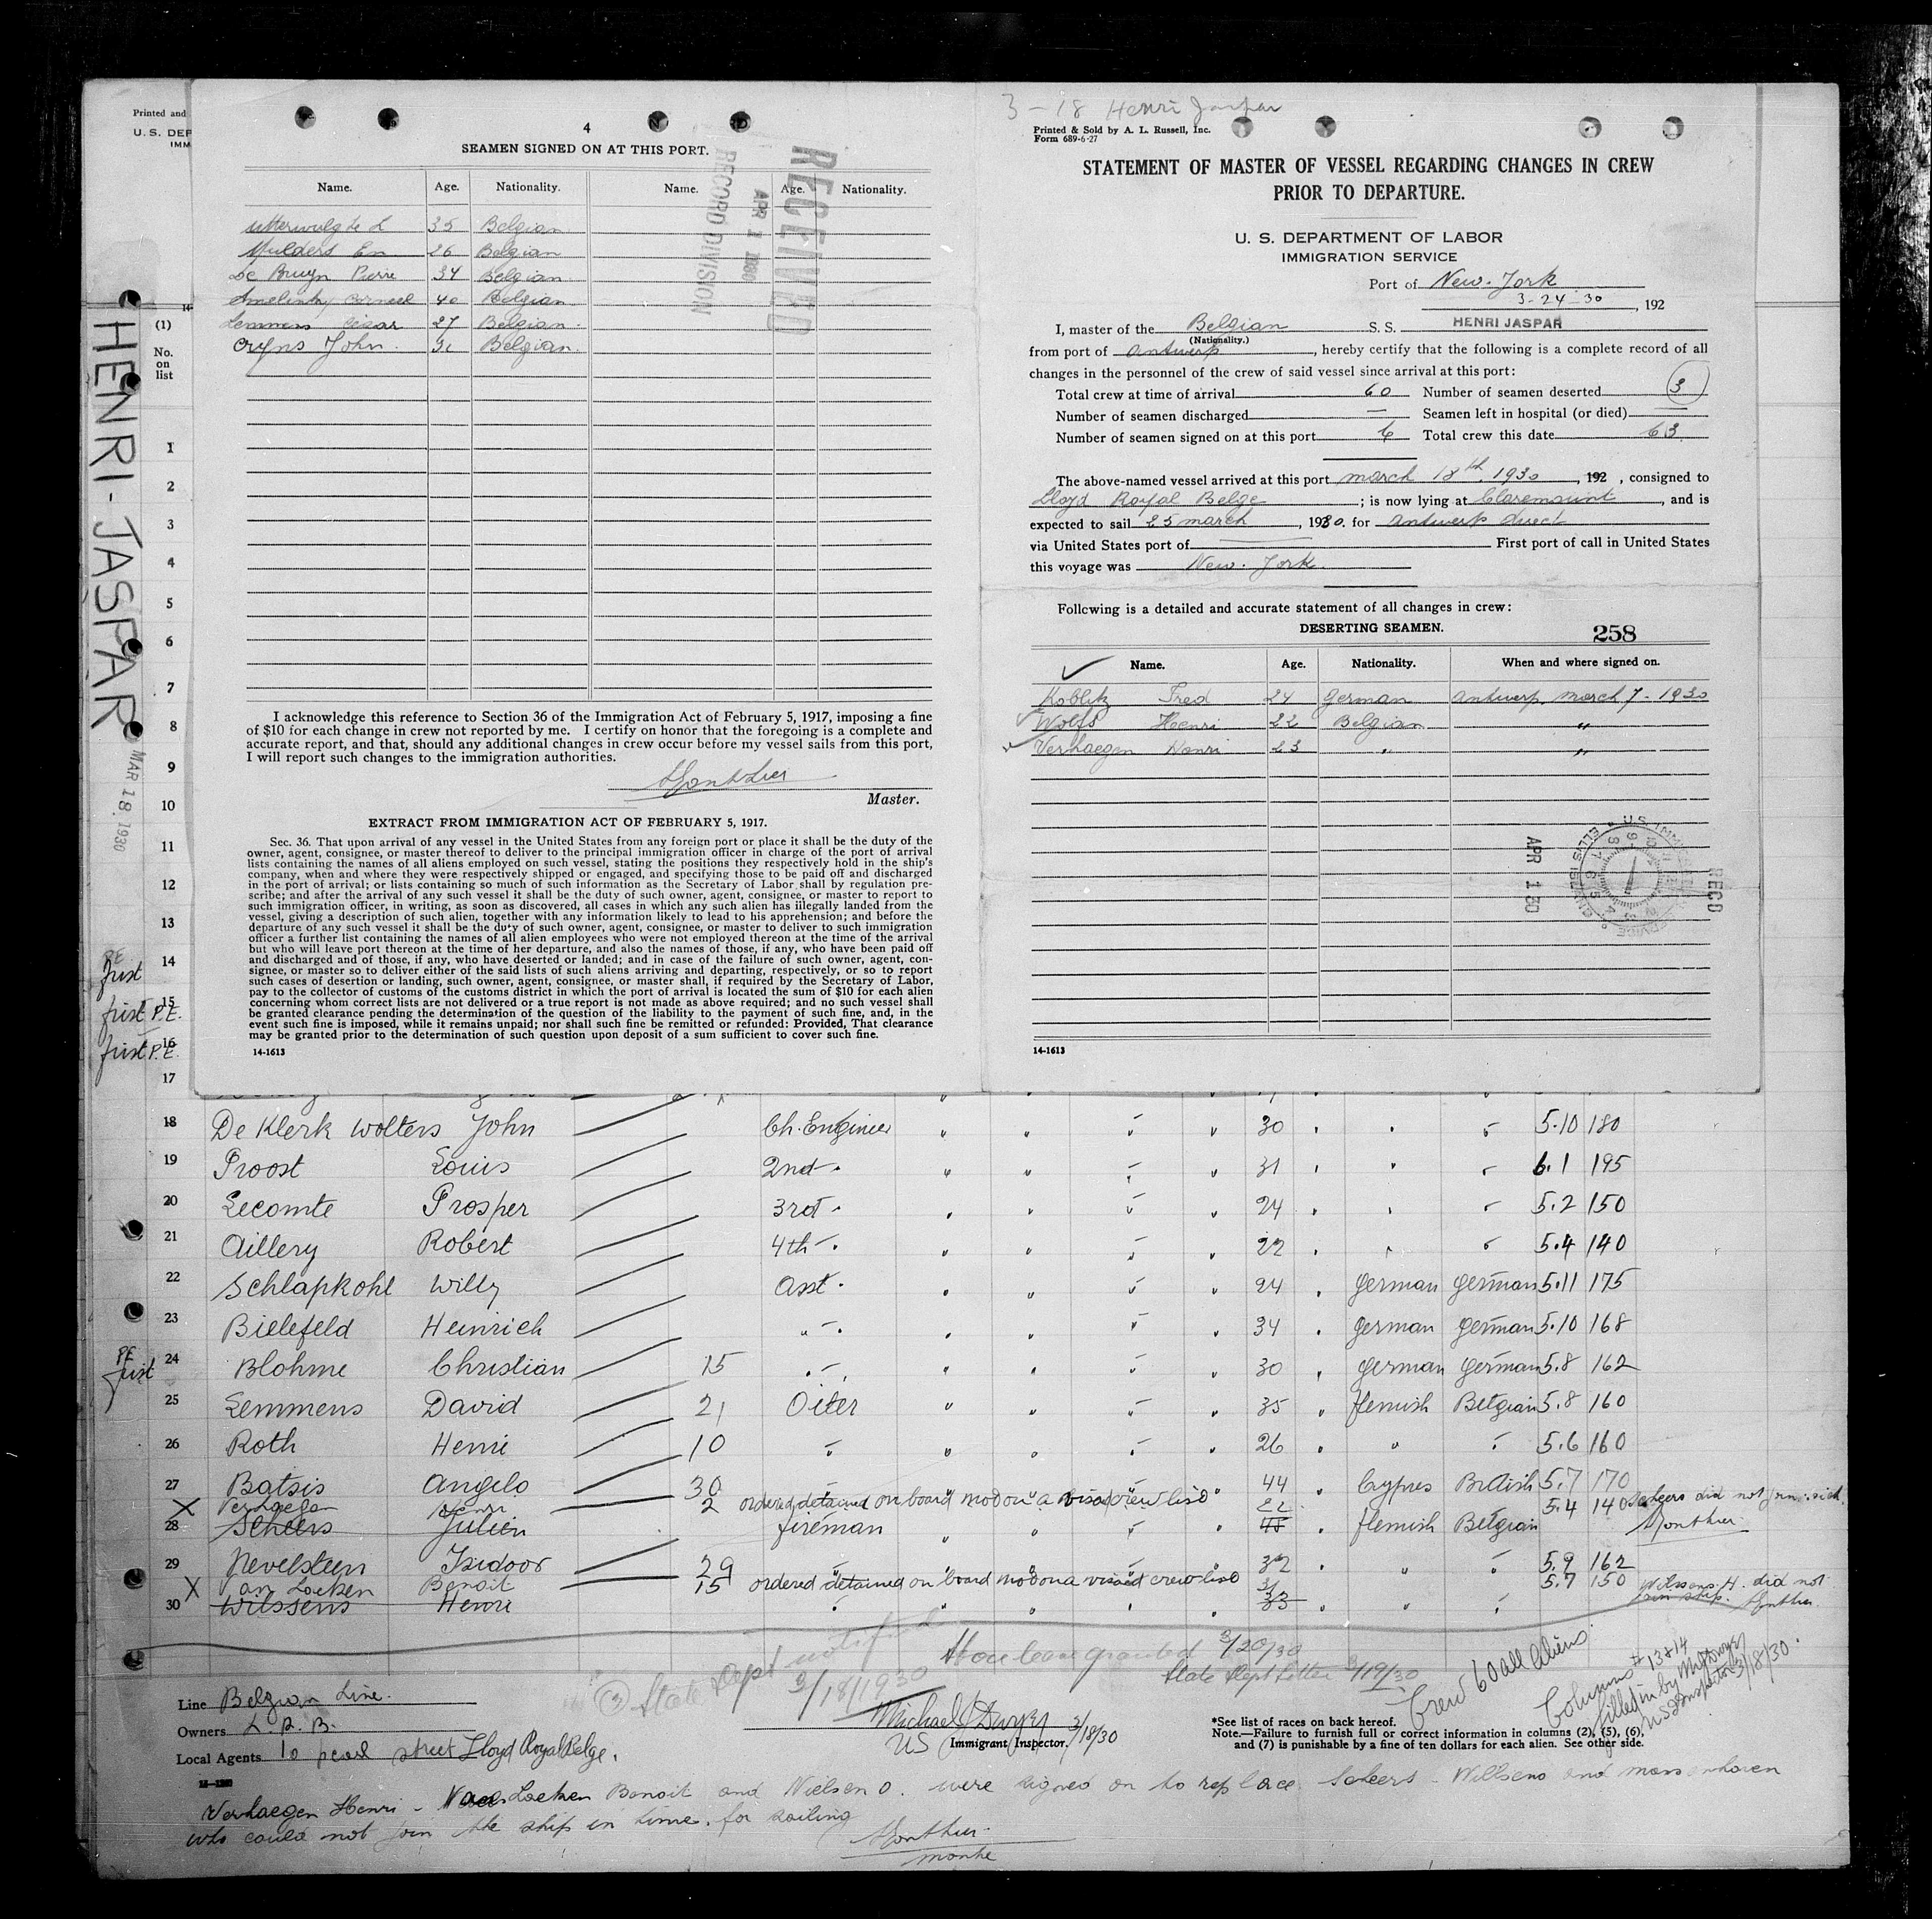 Printed and
U. S. DEP
IMM
14-
(1)
No.
on
list
HENRI-JASPAR
MAR 18. 1930
1
2
3
4
5
6
7
8
9
10
11
12
13
PE
first 14
first P.E. 15
first P.E. 16
17
4
SEAMEN SIGNED ON AT THIS PORT.
Name. Age. Nationality. Name. Age. Nationality.
L 35 Belgian
Mulders Em 26 Belgian
De Bruyn Pierre 34 Belgian
Corneel 40 Belgian
Lemmens César 27 Belgian.
Cryns John. Belgian.
RECEIVED
APR 2 1930
RECORD DIVISION
I acknowledge this reference to Section 36 of the Immigration Act of February 5, 1917, imposing a fine
of $10 for each change in crew not reported by me. I certify on honor that the foregoing is a complete and
accurate report, and that, should any additional changes in crew occur before my vessel sails from this port,
I will report such changes to the immigration authorities.
Master.
EXTRACT FROM IMMIGRATION ACT OF FEBRUARY 5, 1917.
Sec. 36. That upon arrival of any vessel in the United States from any foreign port or place it shall be the duty of the
owner, agent, consignee, or master thereof to deliver to the principal immigration officer in charge of the port of arrival
lists containing the names of all aliens employed on such vessel, stating the positions they respectively hold in the ship's
company, when and where they were respectively shipped or engaged, and specifying those to be paid off and discharged
in the port of arrival; or lists containing so much of such information as the Secretary of Labor shall by regulation pre-
scribe; and after the arrival of any such vessel it shall be the duty of such owner, agent, consignee, or master to report to
such immigration officer, in writing, as soon as discovered, all cases in which any such alien has illegally landed from the
vessel, giving a description of such alien, together with any information likely to lead to his apprehension; and before the
departure of any such vessel it shall be the duty of such owner, agent, consignee, or master to deliver to such immigration
officer a further list containing the names of all alien employees who were not employed thereon at the time of the arrival
but who will leave port thereon at the time of her departure, and also the names of those, if any, who have been paid off
and discharged and of those, if any, who have deserted or landed; and in case of the failure of such owner, agent, con-
signee, or master so to deliver either of the said lists of such aliens arriving and departing, respectively, or so to report
such cases of desertion or landing, such owner, agent, consignee, or master shall, if required by the Secretary of Labor,
pay to the collector of customs of the customs district in which the port of arrival is located the sum of $10 for each alien
concerning whom correct lists are not delivered or a true report is not made as above required; and no such vessel shall
be granted clearance pending the determination of the question of the liability to the payment of such fine, and, in the
event such fine is imposed, while it remains unpaid; nor shall such fine be remitted or refunded: Provided, That clearance
may be granted prior to the determination of such question upon deposit of a sum sufficient to cover such fine.
14-1613
3-18 Henri Jaspar
Printed & Sold by A. L. Russell, Inc.
Form 689-6-27
STATEMENT OF MASTER OF VESSEL REGARDING CHANGES IN CREW
PRIOR TO DEPARTURE.
U. S. DEPARTMENT OF LABOR
IMMIGRATION SERVICE
Port of New-York
3-24-30, 192
I, master of the Belgian S. S. HENRI JASPAR
(Nationality.)
from port of Antwerp, hereby certify that the following is a complete record of all
changes in the personnel of the crew of said vessel since arrival at this port:
Total crew at time of arrival 60 Number of seamen deserted 3
Number of seamen discharged — Seamen left in hospital (or died) —
Number of seamen signed on at this port 6 Total crew this date 63
The above-named vessel arrived at this port march 18th, 1930, 192 , consigned to
Lloyd Royal Belge; is now lying at Claremount, and is
expected to sail 25 march, 1930. for Antwerp direct
via United States port of — First port of call in United States
this voyage was New-York.
Following is a detailed and accurate statement of all changes in crew:
DESERTING SEAMEN. 258
Name. Age. Nationality. When and where signed on.
Koblitz Fred 24 German Antwerp. march 7-1930
Wolfs Henri 22 Belgian "
Verhaegen Henri 23 " "
RECD
APR 1 30
14-1613
18 De Klerk Wolters John Ch. Engineer " " " " 30 " " " 5.10 180
19 Proost Louis 2nd " " " " " 31 " " " 6.1 195
20 Lecomte Prosper 3rd " " " " " 24 " " " 5.2 150
21 Aillery Robert 4th " " " " " 22 " " " 5.4 140
22 Schlapkohl Willy Asst " " " " " 24 " german german 5.11 175
23 Bielefeld Heinrich " " " " " " 34 " german german 5.10 168
PE first 24 Blohme Christian 15 " " " " " 30 " german german 5.8 162
25 Lemmens David 21 Oiler " " " " 35 " flemish Belgian 5.8 160
26 Roth Henri 10 " " " " " 26 " " " 5.6 160
27 Batsis Angelo 30 " " " " 44 " Cypres British 5.7 170
X Verhaegen Henri 2 ordered detained on board not on a visaed crew list 22 5.4 140 Scheers did not join ship.
28 Scheers Julien fireman " " " " 45 " flemish Belgian
29 Nevelsteen Isidoor 29 " " " " " 32 " " " 5.9 162
X Van Loeken Benoit 15 ordered detained on board not on a visaed crew list 31 5.7 150 Wilssens. H. did not
30 Wilssens Henri " " " " " 33 " " " join ship.
State Dept notified
3/18/1930
granted 3/20/30
State Dept Letter 3/19/30
Crew 60 all aliens
Columns # 13 & 14
filled in by M. J. Dwyer
US Inspector 3/18/30.
Line Belgian Line.
Owners L. R. B.
Local Agents 10 pearl street Lloyd Royal Belge.
Michael J Dwyer 3/18/30
US Immigrant Inspector.
*See list of races on back hereof.
Note.—Failure to furnish full or correct information in columns (2), (5), (6),
and (7) is punishable by a fine of ten dollars for each alien. See other side.
Verhaegen Henri - Van Loeken Benoit and Nielsen O. were signed on to replace Scheers - Willsens and
who could not join the ship in time for sailing